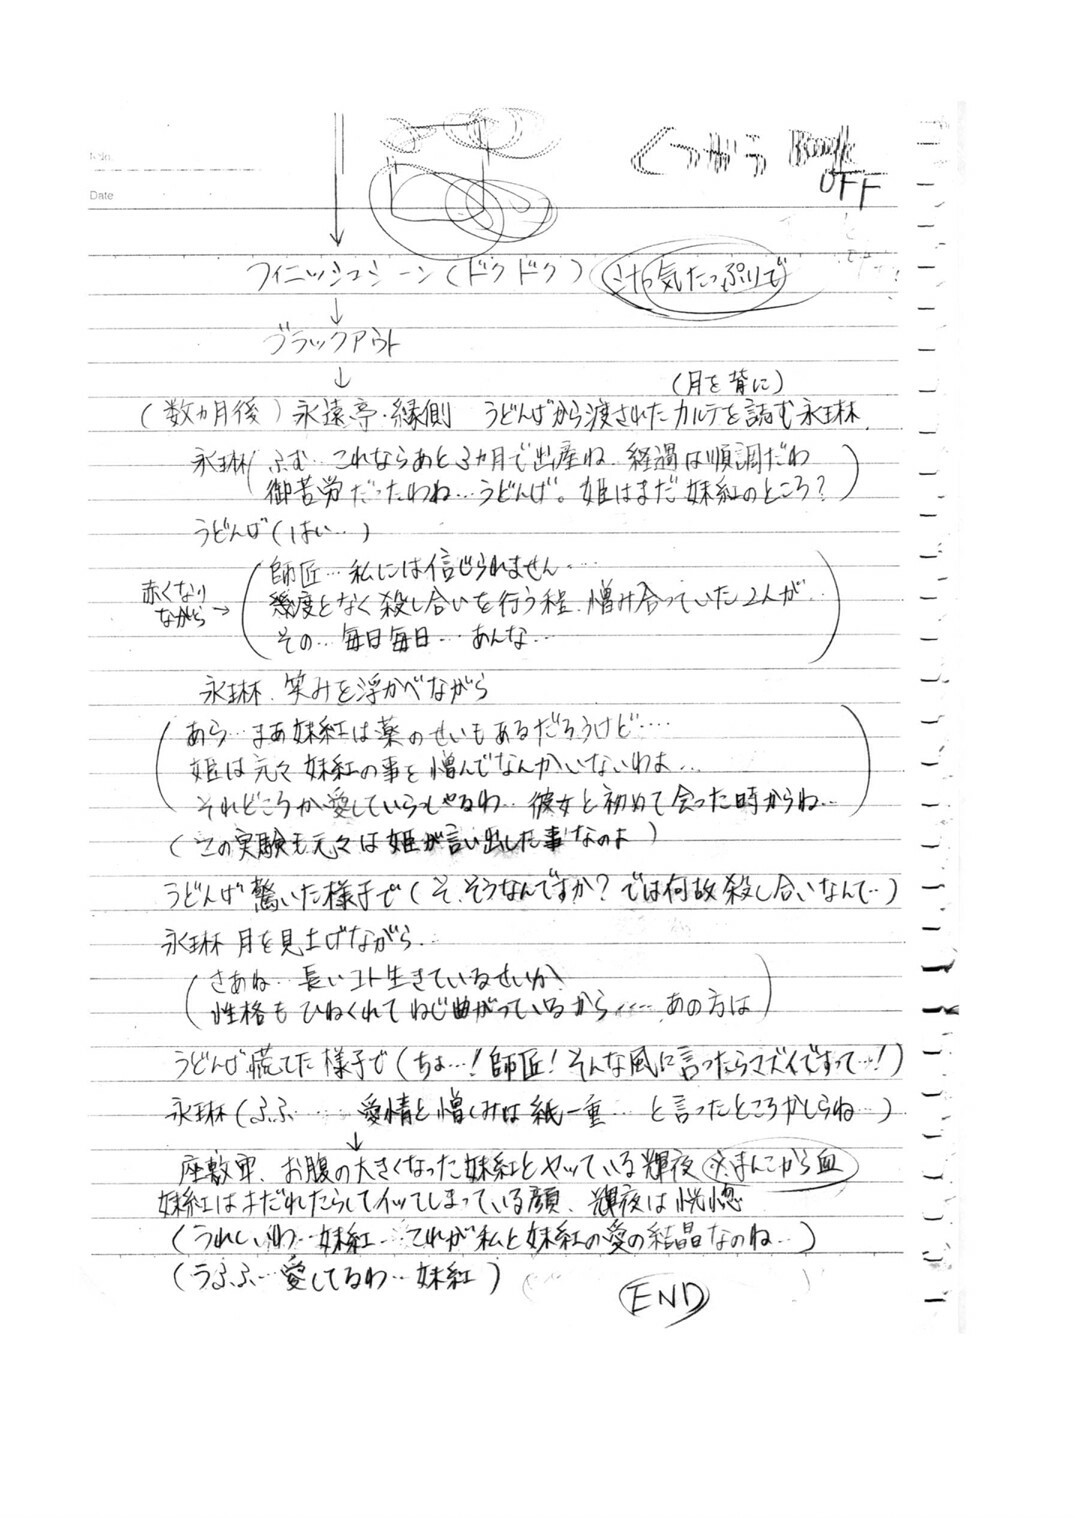 No.
Date
くつがる Book
OFF
フィニッシュシーン(ドクドク) 汁っ気たっぷりで
ブラックアウト
(月を背に)
(数ヵ月後)永遠亭・縁側 うどんげから渡されたカルテを読む永琳
永琳(ふむ…これならあと3カ月で出産ね 経過は順調だわ
御苦労だったわね…うどんげ。姫はまだ妹紅のところ?)
うどんげ(はい…)
赤くなり
ながら→
(師匠…私には信じられません…
幾度となく殺し合いを行う程、憎み合っていた2人が…
その…毎日毎日…あんな…)
永琳、笑みを浮かべながら
(あら…まあ妹紅は薬のせいもあるだろうけど…
姫は元々妹紅の事を憎んでなんかいないわよ…
それどころか愛していらっしゃるわ…彼女と初めて会った時からね…)
(この実験も元々は姫が言い出した事なのよ)
うどんげ驚いた様子で(そ、そうなんですか?では何故殺し合いなんて…)
永琳 月を見上げながら…
(さあね…長いコト生きているせいか
性格もひねくれてねじ曲がっているから……あの方は)
うどんげ慌てた様子で(ちょ…!師匠!そんな風に言ったらマズイですって…!)
永琳(ふふ……愛情と憎しみは紙一重…と言ったところかしらね…)
座敷牢、お腹の大きくなった妹紅とヤッている輝夜 ※まんこから血
妹紅はまだれたらしてイッてしまっている顔、輝夜は恍惚
(うれしいわ…妹紅…これが私と妹紅の愛の結晶なのね…)
(うふふ…愛してるわ…妹紅)
END